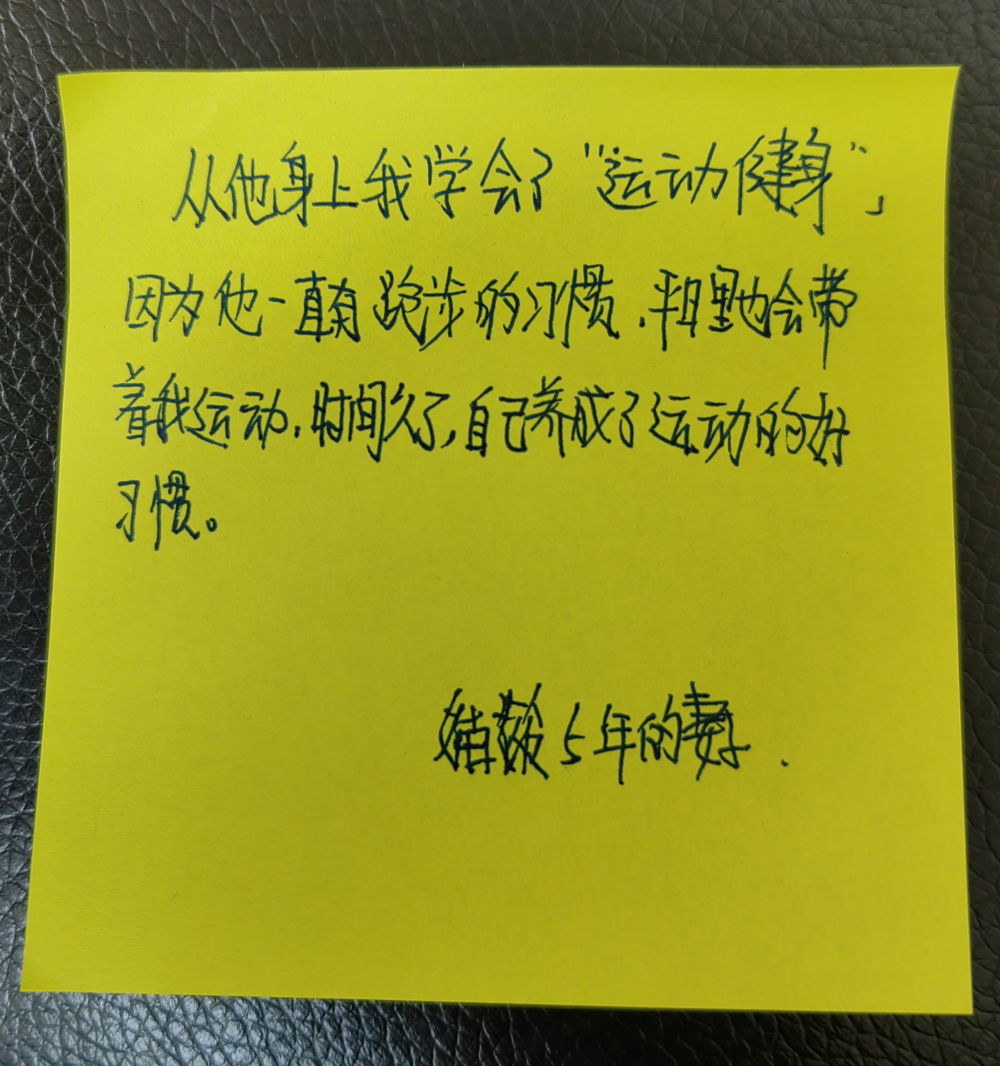 从他身上我学会了“运动健身”，
因为他一直有跑步的习惯，平日里也会带
着我运动，时间久了，自己养成了运动的好
习惯。
婚龄5年的妻子.